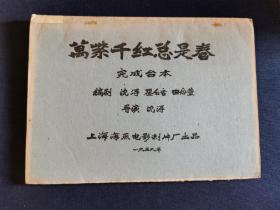 萬紫千红总是春
完成台本
编剧 沈浮 瞿白音 田念萱
导演 沈浮
上海海燕电影制片厂出品
一九五九年